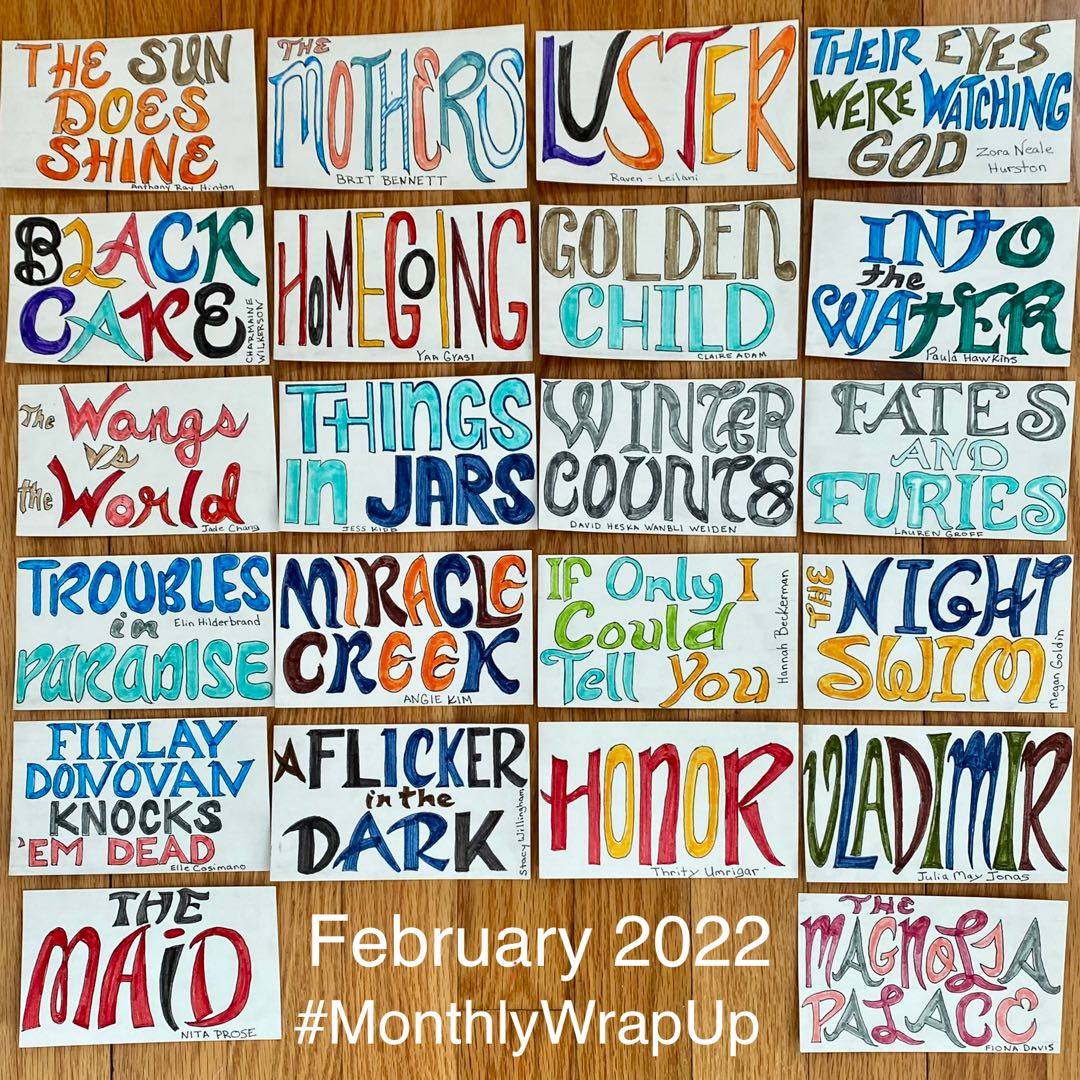 THE SUN
DOES
SHINE
Anthony Ray Hinton
THE
MOTHERS
BRIT BENNETT
LUSTER
Raven - Leilani
THEIR EYES
WERE WATCHING
GOD
Zora Neale
Hurston
BLACK
CAKE
CHARMAINE
WILKERSON
HOMEGOING
YAA GYASI
GOLDEN
CHILD
CLAIRE ADAM
INTO
the
WATER
Paula Hawkins
The Wangs
vs
the World
Jade Chang
THINGS
in JARS
JESS KIDD
WINTER
COUNTS
DAVID HESKA WANBLI WEIDEN
FATES
AND
FURIES
LAUREN GROFF
TROUBLES
in
Elin Hilderbrand
PARADISE
MIRACLE
CREEK
ANGIE KIM
IF Only I
Could
Tell You
Hannah Beckerman
THE NIGHT
SWIM
Megan Goldin
FINLAY
DONOVAN
KNOCKS
'EM DEAD
Elle Cosimano
A FLICKER
in the
DARK
Stacy Willingham
HONOR
Thrity Umrigar
VLADIMIR
Julia May Jonas
THE
MAiD
NITA PROSE
February 2022
#MonthlyWrapUp
THE
MAGNOLIA
PALACE
FIONA DAVIS